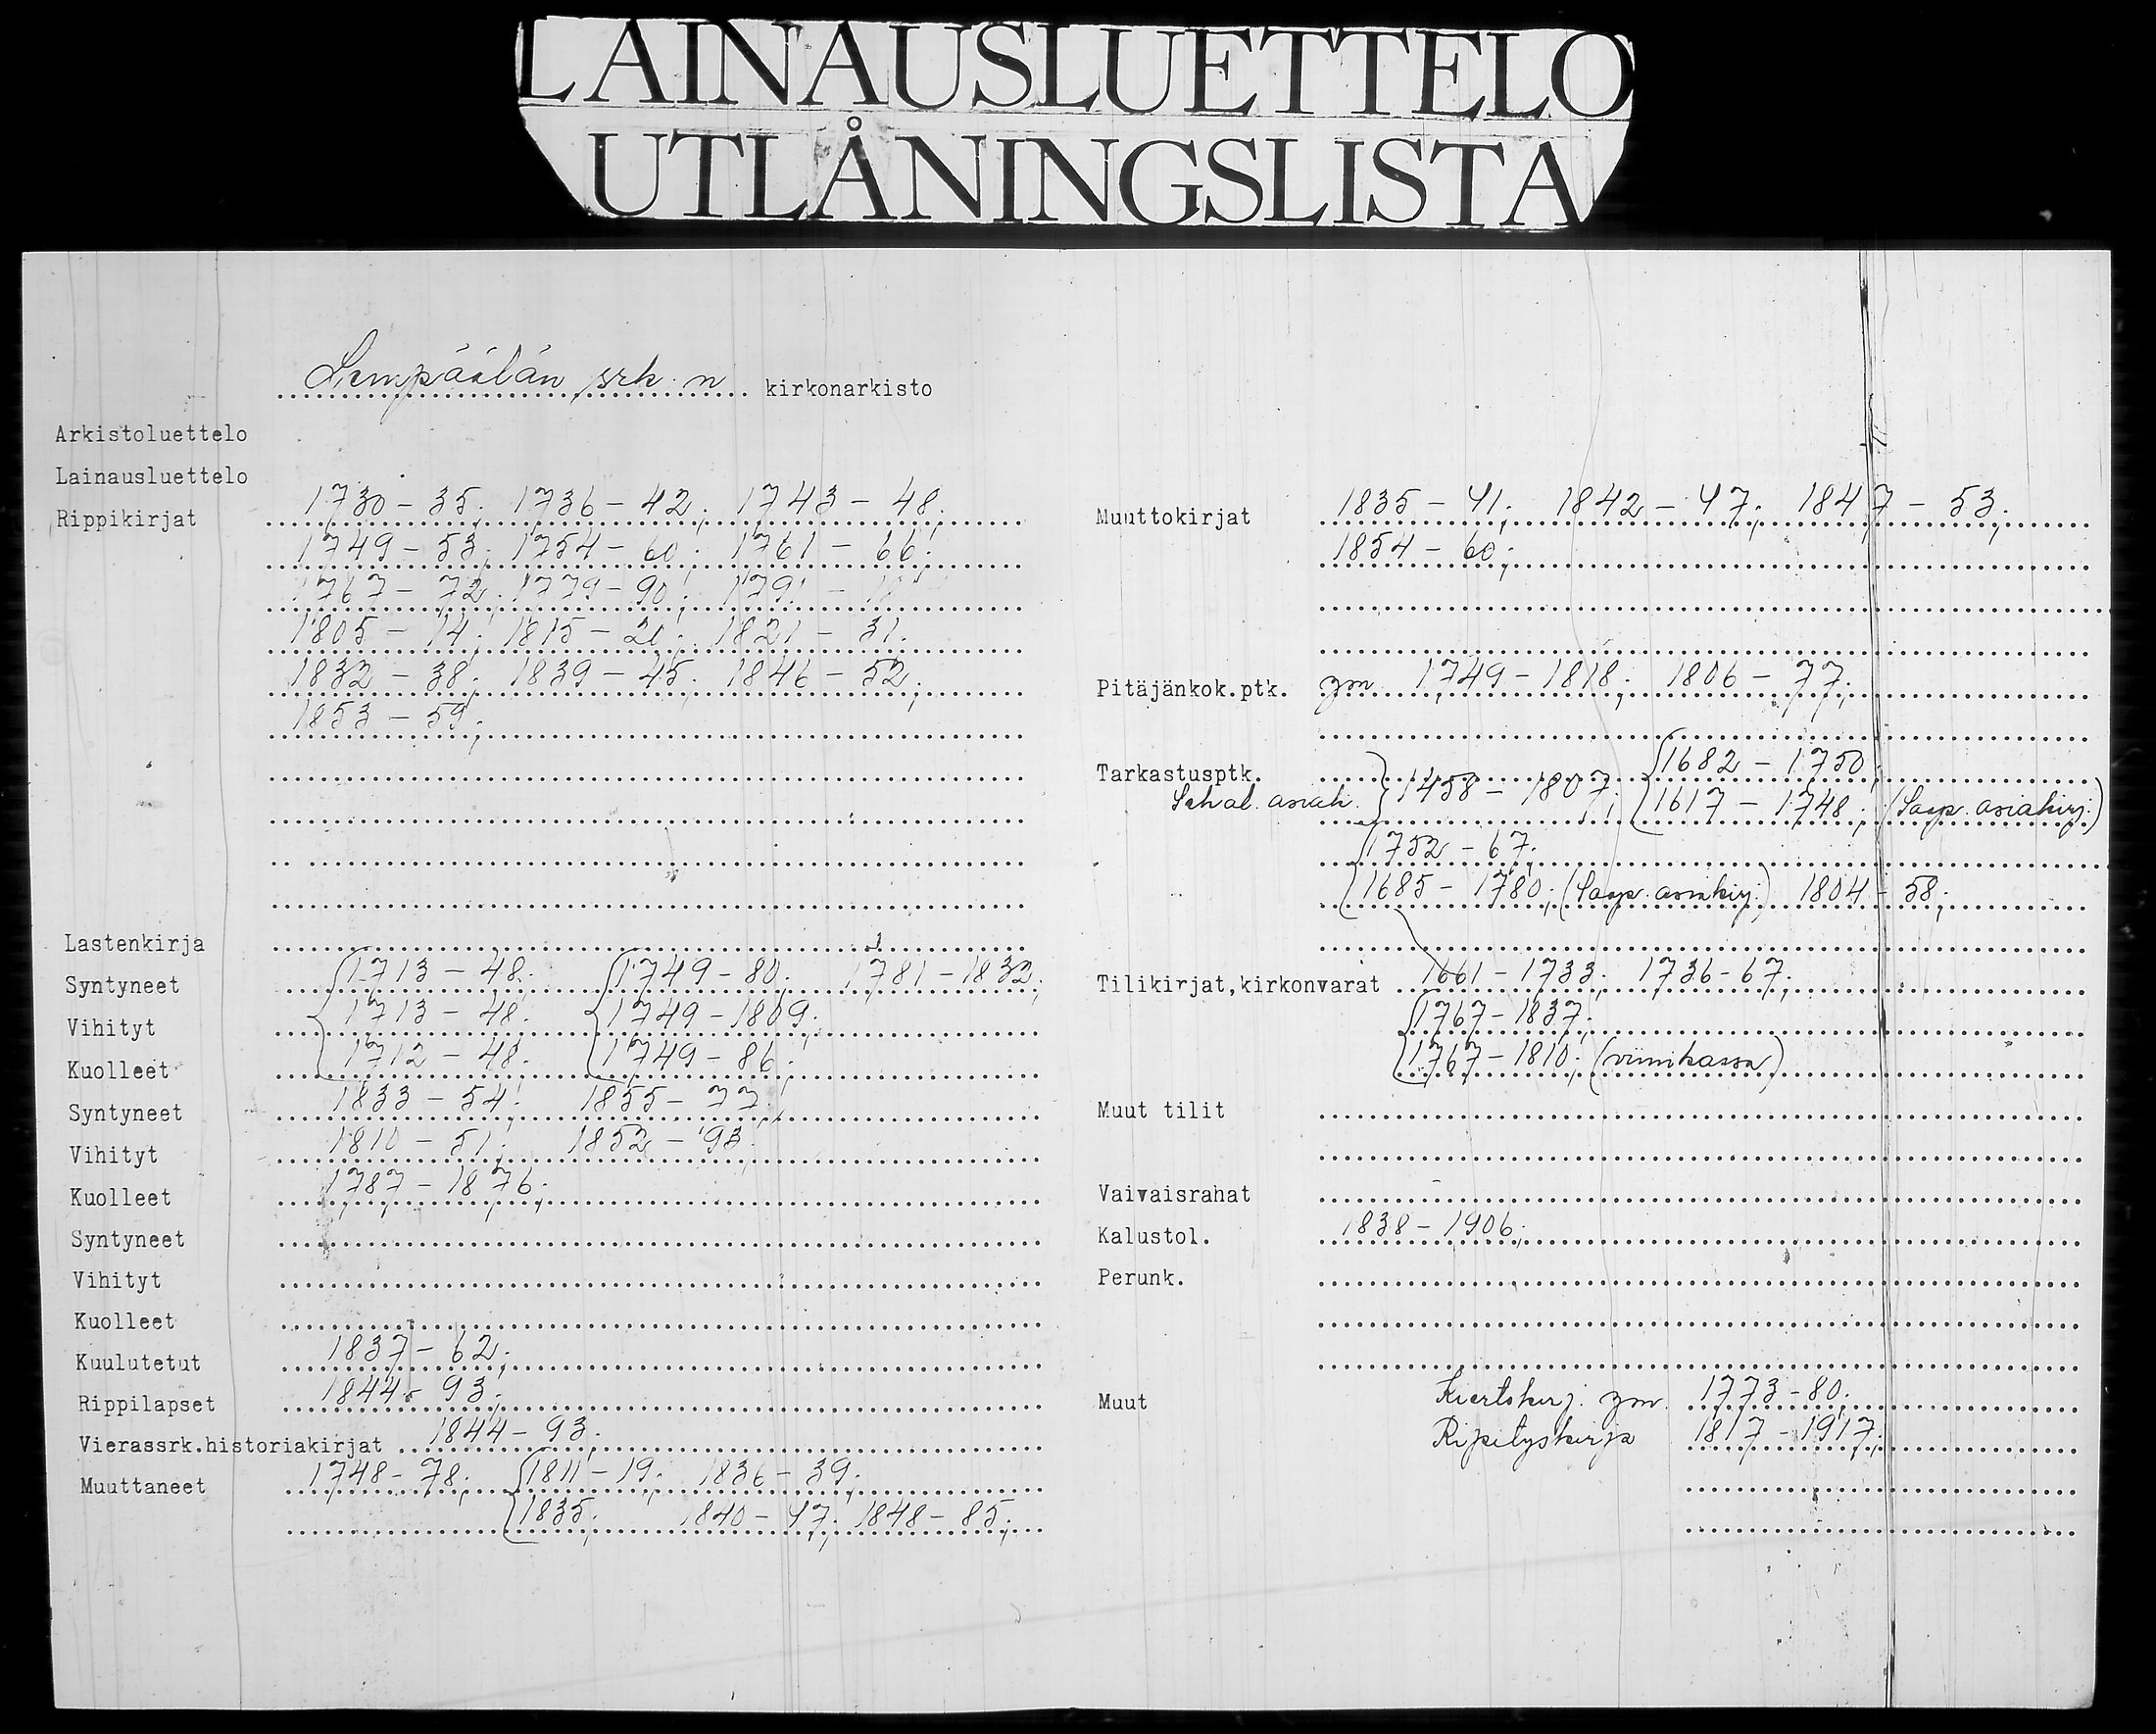 LAINAUSLUETTELO
UTLÅNINGSLISTA
Lempäälän srk:n kirkonarkisto
Arkistoluettelo
Lainausluettelo
Rippikirjat 1730-35; 1736-42; 1743-48;
1749-53; 1754-60; 1761-66;
1767-72; 1779-90; 1791-
1805-14; 1815-20; 1821-31;
1832-38; 1839-45; 1846-52;
1853-59;
Lastenkirja
Syntyneet 1713-48; 1749-80; 1781-1832;
Vihityt 1713-48; 1749-1809;
Kuolleet 1712-48; 1749-86;
Syntyneet 1833-54; 1855-77;
Vihityt 1810-51; 1852-93
Kuolleet 1787-1876;
Syntyneet
Vihityt
Kuolleet
Kuulutetut 1837-62;
Rippilapset 1844-93;
Vierassrk.historiakirjat 1844-93;
Muuttaneet 1748-78; 1811-19; 1836-39;
1835; 1840-47; 1848-85;
Muuttokirjat 1835-41; 1842-47; 1847-53;
1854-60;
Pitäjänkok.ptk. ym 1749-1818; 1806-77;
Tarkastusptk. 1682-1750;
Sekal. asiak. 1458-1807; 1617-1748; (Saap. asiakirj.)
1752-67;
1685-1780; (Saap. asiakirj.) 1804-58;
Tilikirjat,kirkonvarat 1661-1733; 1736-67;
1767-1837;
1767-1810; (viinikassa)
Muut tilit
Vaivaisrahat
Kalustol. 1838-1906;
Perunk.
Muut Kiertokirj. ym. 1773-80;
Ripityskirja 1817-1917;